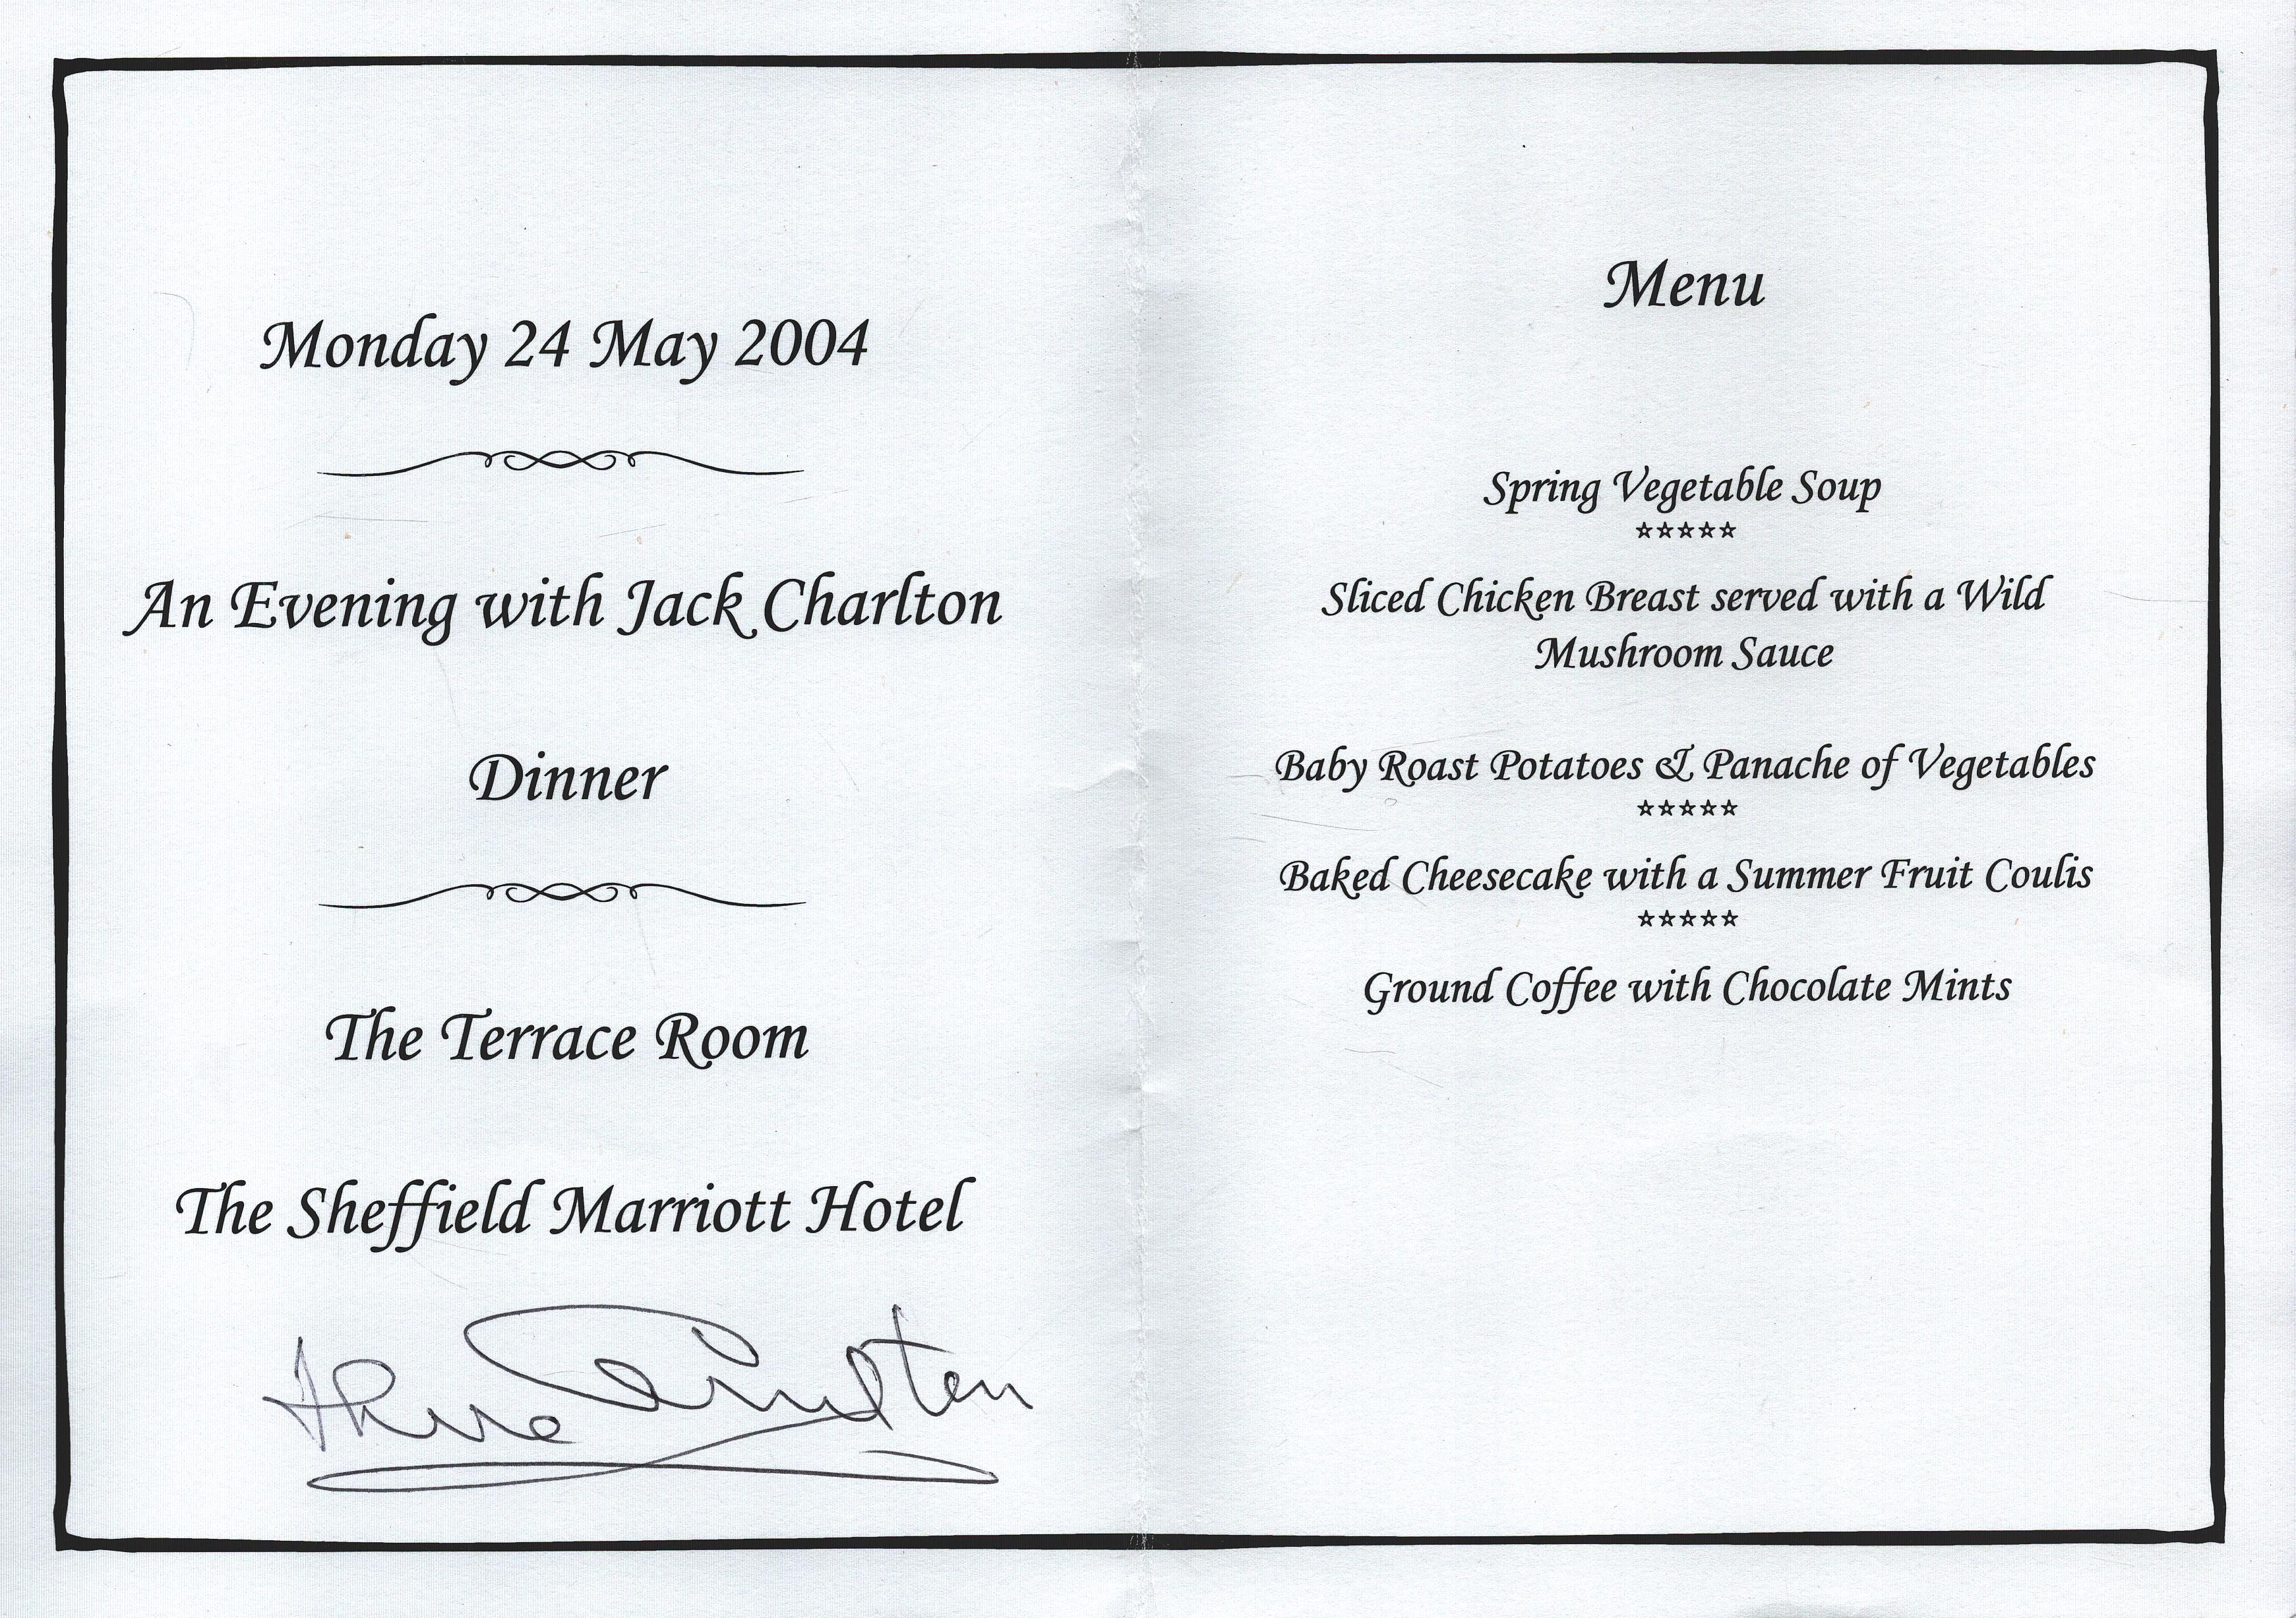 Monday 24 May 2004
An Evening with Jack Charlton
Dinner
The Terrace Room
The Sheffield Marriott Hotel
Menu
Spring Vegetable Soup
☆☆☆☆☆
Sliced Chicken Breast served with a Wild
Mushroom Sauce
Baby Roast Potatoes & Panache of Vegetables
☆☆☆☆☆
Baked Cheesecake with a Summer Fruit Coulis
☆☆☆☆☆
Ground Coffee with Chocolate Mints